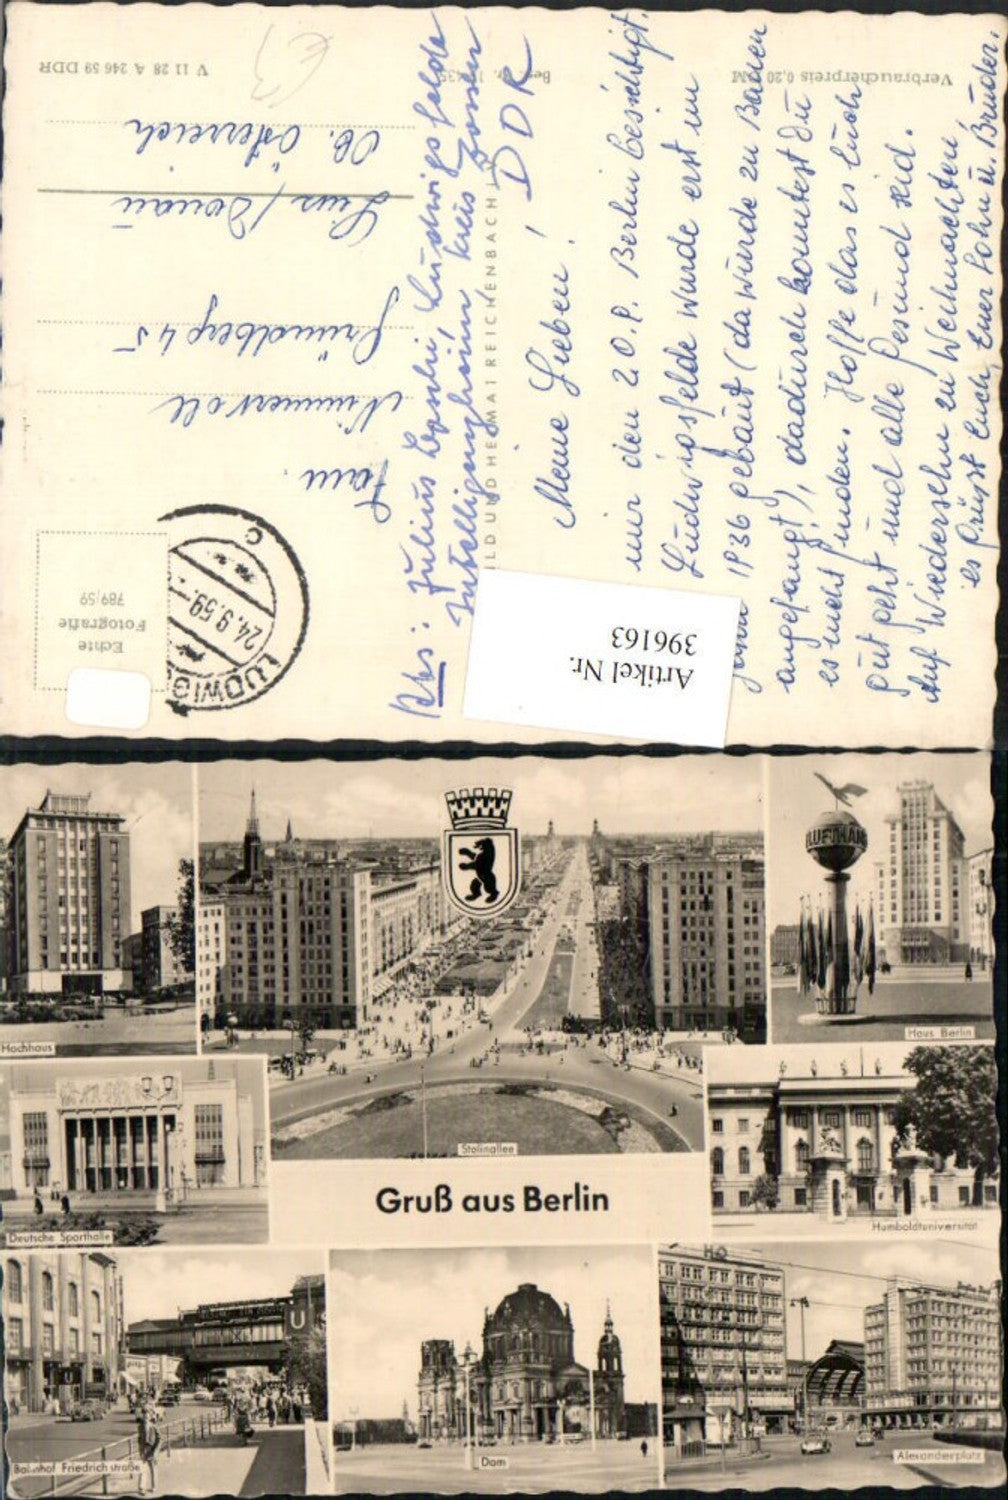 Verbraucherpreis 0,20 DM
V 11 28 A 246 59 DDR
BILD UND HEIMAT REICHENBACH
Echte
Fotografie
789/59
LUDWIGS
24.9.59
c
Fam.
Nimmervoll
Gründberg 45
Linz/Donau
Ob. Österreich
Abs: Julius
Ludwigsfelde
Intelligenzheim, Kreis Zossen
DDR
Meine Lieben!
nur den z.O.P. Berlin besichtigt.
Ludwigsfelde wurde erst im
Jahr 1936 gebaut (da wurde zu Bauen
angefangt), dadurch konntest Du
es nicht finden. Hoffe das es Euch
gut geht und alle Gesund seid.
Auf Wiedersehn zu Weihnachten
es Grüsst Euch, Euer Sohn u. Bruder.
Artikel Nr.
396163
Hochhaus
Stalinallee
LUFTHANSA
Haus Berlin
Deutsche Sporthalle
Gruß aus Berlin
Humboldtuniversität
U
HO
Bahnhof Friedrichstraße
Dom
Alexanderplatz